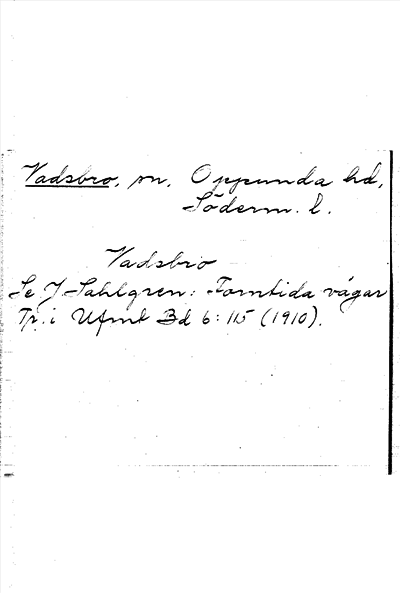 Vadsbro, sn, Oppunda hd,
Söderm. l.
Vadsbro
Se J. Sahlgren: Forntida vägar
Tr. i Ufmt Bd 6: 115 (1910).